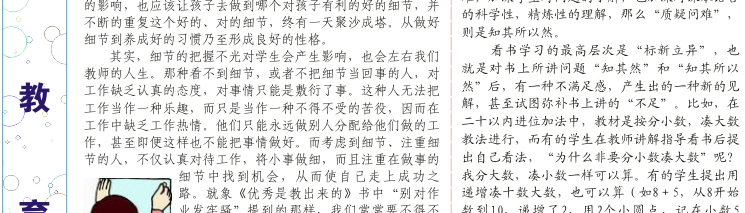 教
育
的影响，也应该让孩子去做到哪个对孩子有利的好的细节，并
不断的重复这个好的、对的细节，终有一天聚沙成塔。从做好
细节到养成好的习惯乃至形成良好的性格。
其实，细节的把握不光对学生会产生影响，也会左右我们
教师的人生。那种看不到细节，或者不把细节当回事的人，对
工作缺乏认真的态度，对事情只能是敷衍了事。这种人无法把
工作当作一种乐趣，而只是当作一种不得不受的苦役，因而在
工作中缺乏工作热情。他们只能永远做别人分配给他们做的工
作，甚至即便这样也不能把事情做好。而考虑到细节、注重细
节的人，不仅认真对待工作，将小事做细，而且注重在做事的
细节中找到机会，从而使自己走上成功之
路。就象《优秀是教出来的》书中“别对作
业发牢骚”提到的那样，我们常常要不得不
的科学性，精炼性的理解，那么“质疑问难”，
则是知其所以然。
看书学习的最高层次是“标新立异”，也
就是对书上所讲问题“知其然”和“知其所以
然”后，有一种不满足感，产生出的一种新的见
解，甚至试图弥补书上讲的“不足”。比如，在
二十以内进位加法中，教材是按分小数，凑大数
教法进行，而有的学生在教师讲解指导看书后提
出自己看法，“为什么非要分小数凑大数”呢？
我分大数，凑小数一样可以算。有的学生提出用
递增凑十数大数，也可以算（如8+5，从8开始
数到10，递增了2，用2个小圆点，记在小数5